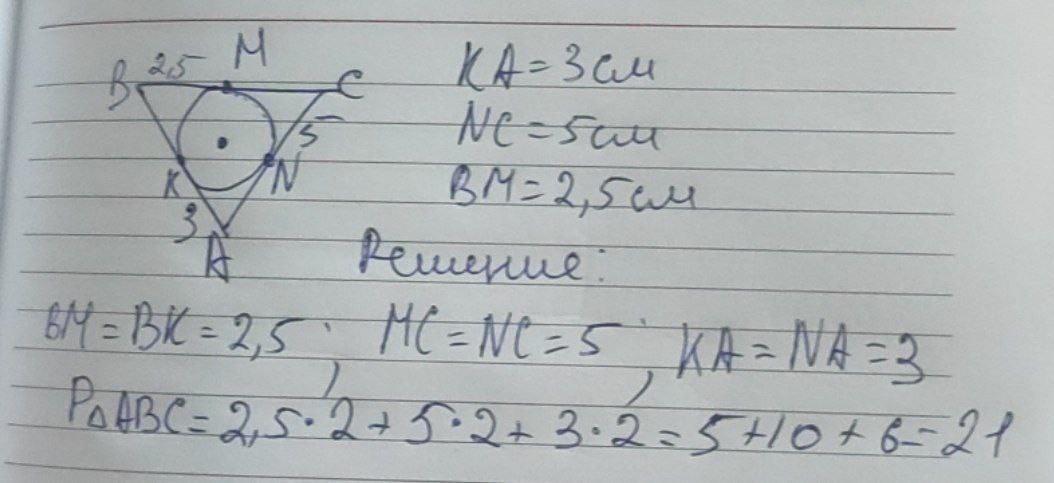 M
B 2,5 C
5
K N
3
A
KA = 3 см
NC = 5 см
BM = 2,5 см
Решение:
BM = BK = 2,5 ; MC = NC = 5 ; KA = NA = 3
P△ABC = 2,5·2 + 5·2 + 3·2 = 5 + 10 + 6 = 21